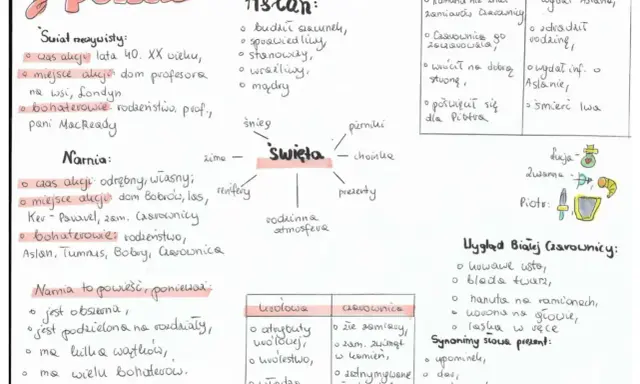 Świat rzeczywisty:
o czas akcji: lata 40. XX wieku,
o miejsce akcji: dom profesora
na wsi, Londyn
o bohaterowie: rodzeństwo, prof.,
pani MacReady
Narnia:
o czas akcji: odrębny, własny;
o miejsce akcji: dom Bobrów, las,
Ker-Paravel, zam. Czarownicy
o bohaterowie: rodzeństwo,
Aslan, Tumnus, Bobry, Czarownica
Narnia to powieść, ponieważ:
o jest obszerna,
o jest podzielona na rozdziały,
o ma kilka wątków,
o ma wielu bohaterów.
Aslan:
o budził szacunek,
o sprawiedliwy,
o stanowczy,
o wrażliwy,
o mądry
śnieg
pierniki
zima
święta
choinka
renifery
prezenty
rodzinna
atmosfera
Królowa
Czarownica
o atrybuty
królowej,
o królestwo,
o władza
o złe zamiary,
o zam. zwierząt
w kamień,
zamiarów Czarownicy
o Czarownica go
zaczarowała,
o wrócił na dobrą
stronę,
o poświęcił się
dla Piotra
o zdradził
rodzinę,
o wydał inf. o
Aslanie,
o śmierć lwa
Łucja -
Zuzanna -
Piotr:
Wygląd Białej Czarownicy:
o krwawe usta,
o blada twarz,
o na ramionach,
o korona na głowie,
o laska w ręce
Synonimy słowa prezent:
o upominek,
o dar,